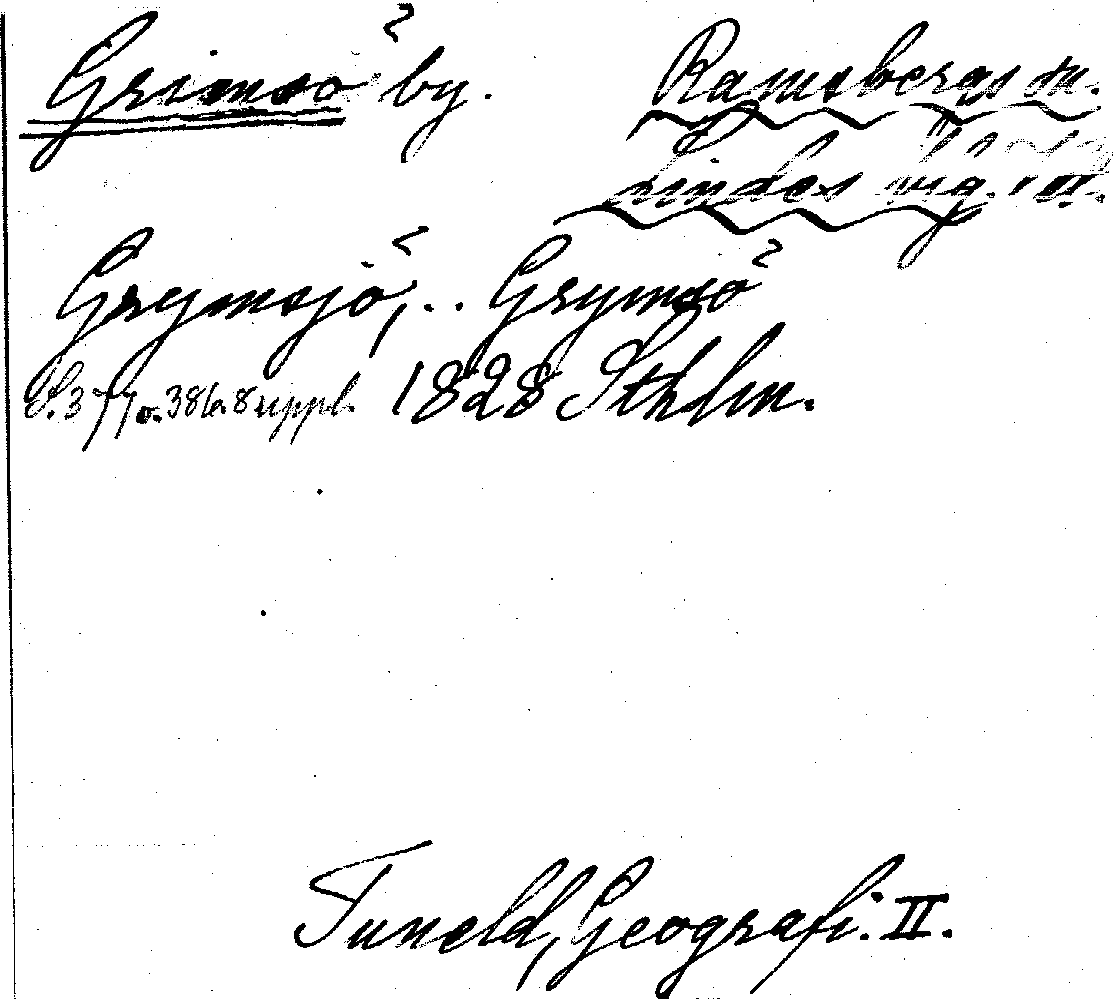 Grimsö by. Ramsbergs sn.
Lindes
Grymsjö, .. Grymsö
S. 377 o. 386 a. 8 suppl. 1828 Sthlm.
Tuneld, Geografi. II.